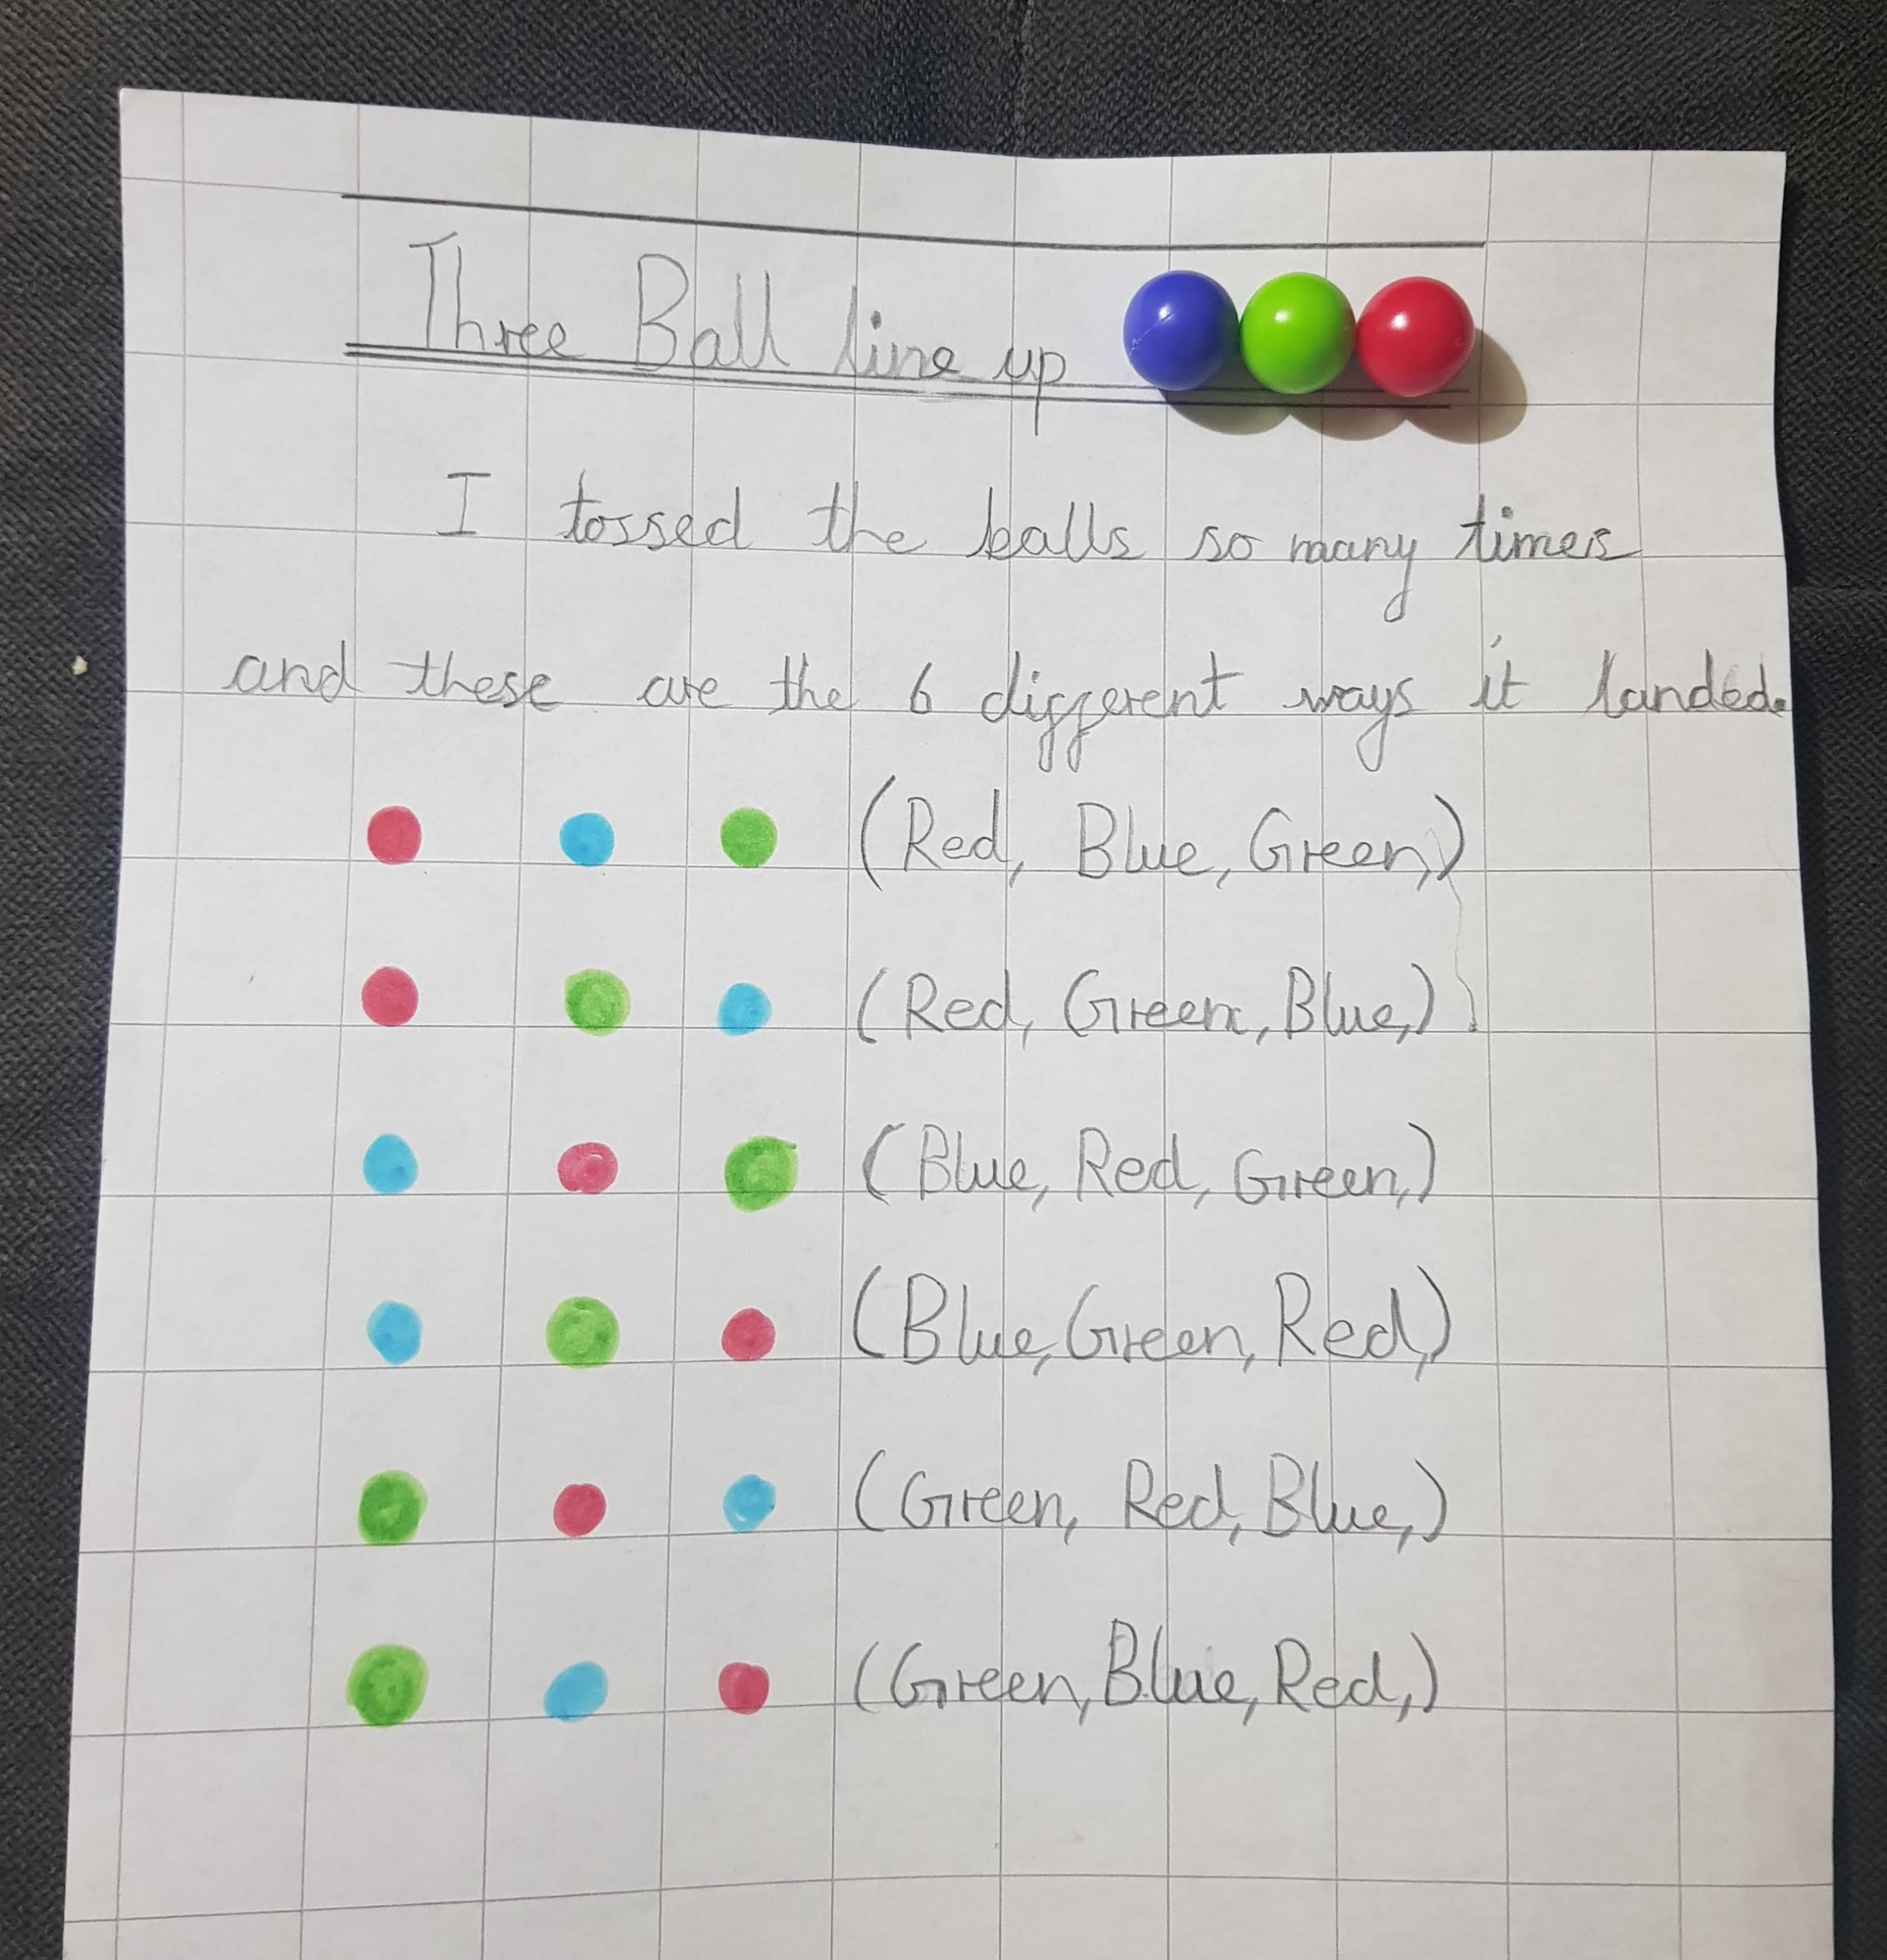 Three Ball line up
I tossed the balls so many times
and these are the 6 different ways it landed.
(Red, Blue, Green,)
(Red, Green, Blue,)
(Blue, Red, Green,)
(Blue, Green, Red,)
(Green, Red, Blue,)
(Green, Blue, Red,)